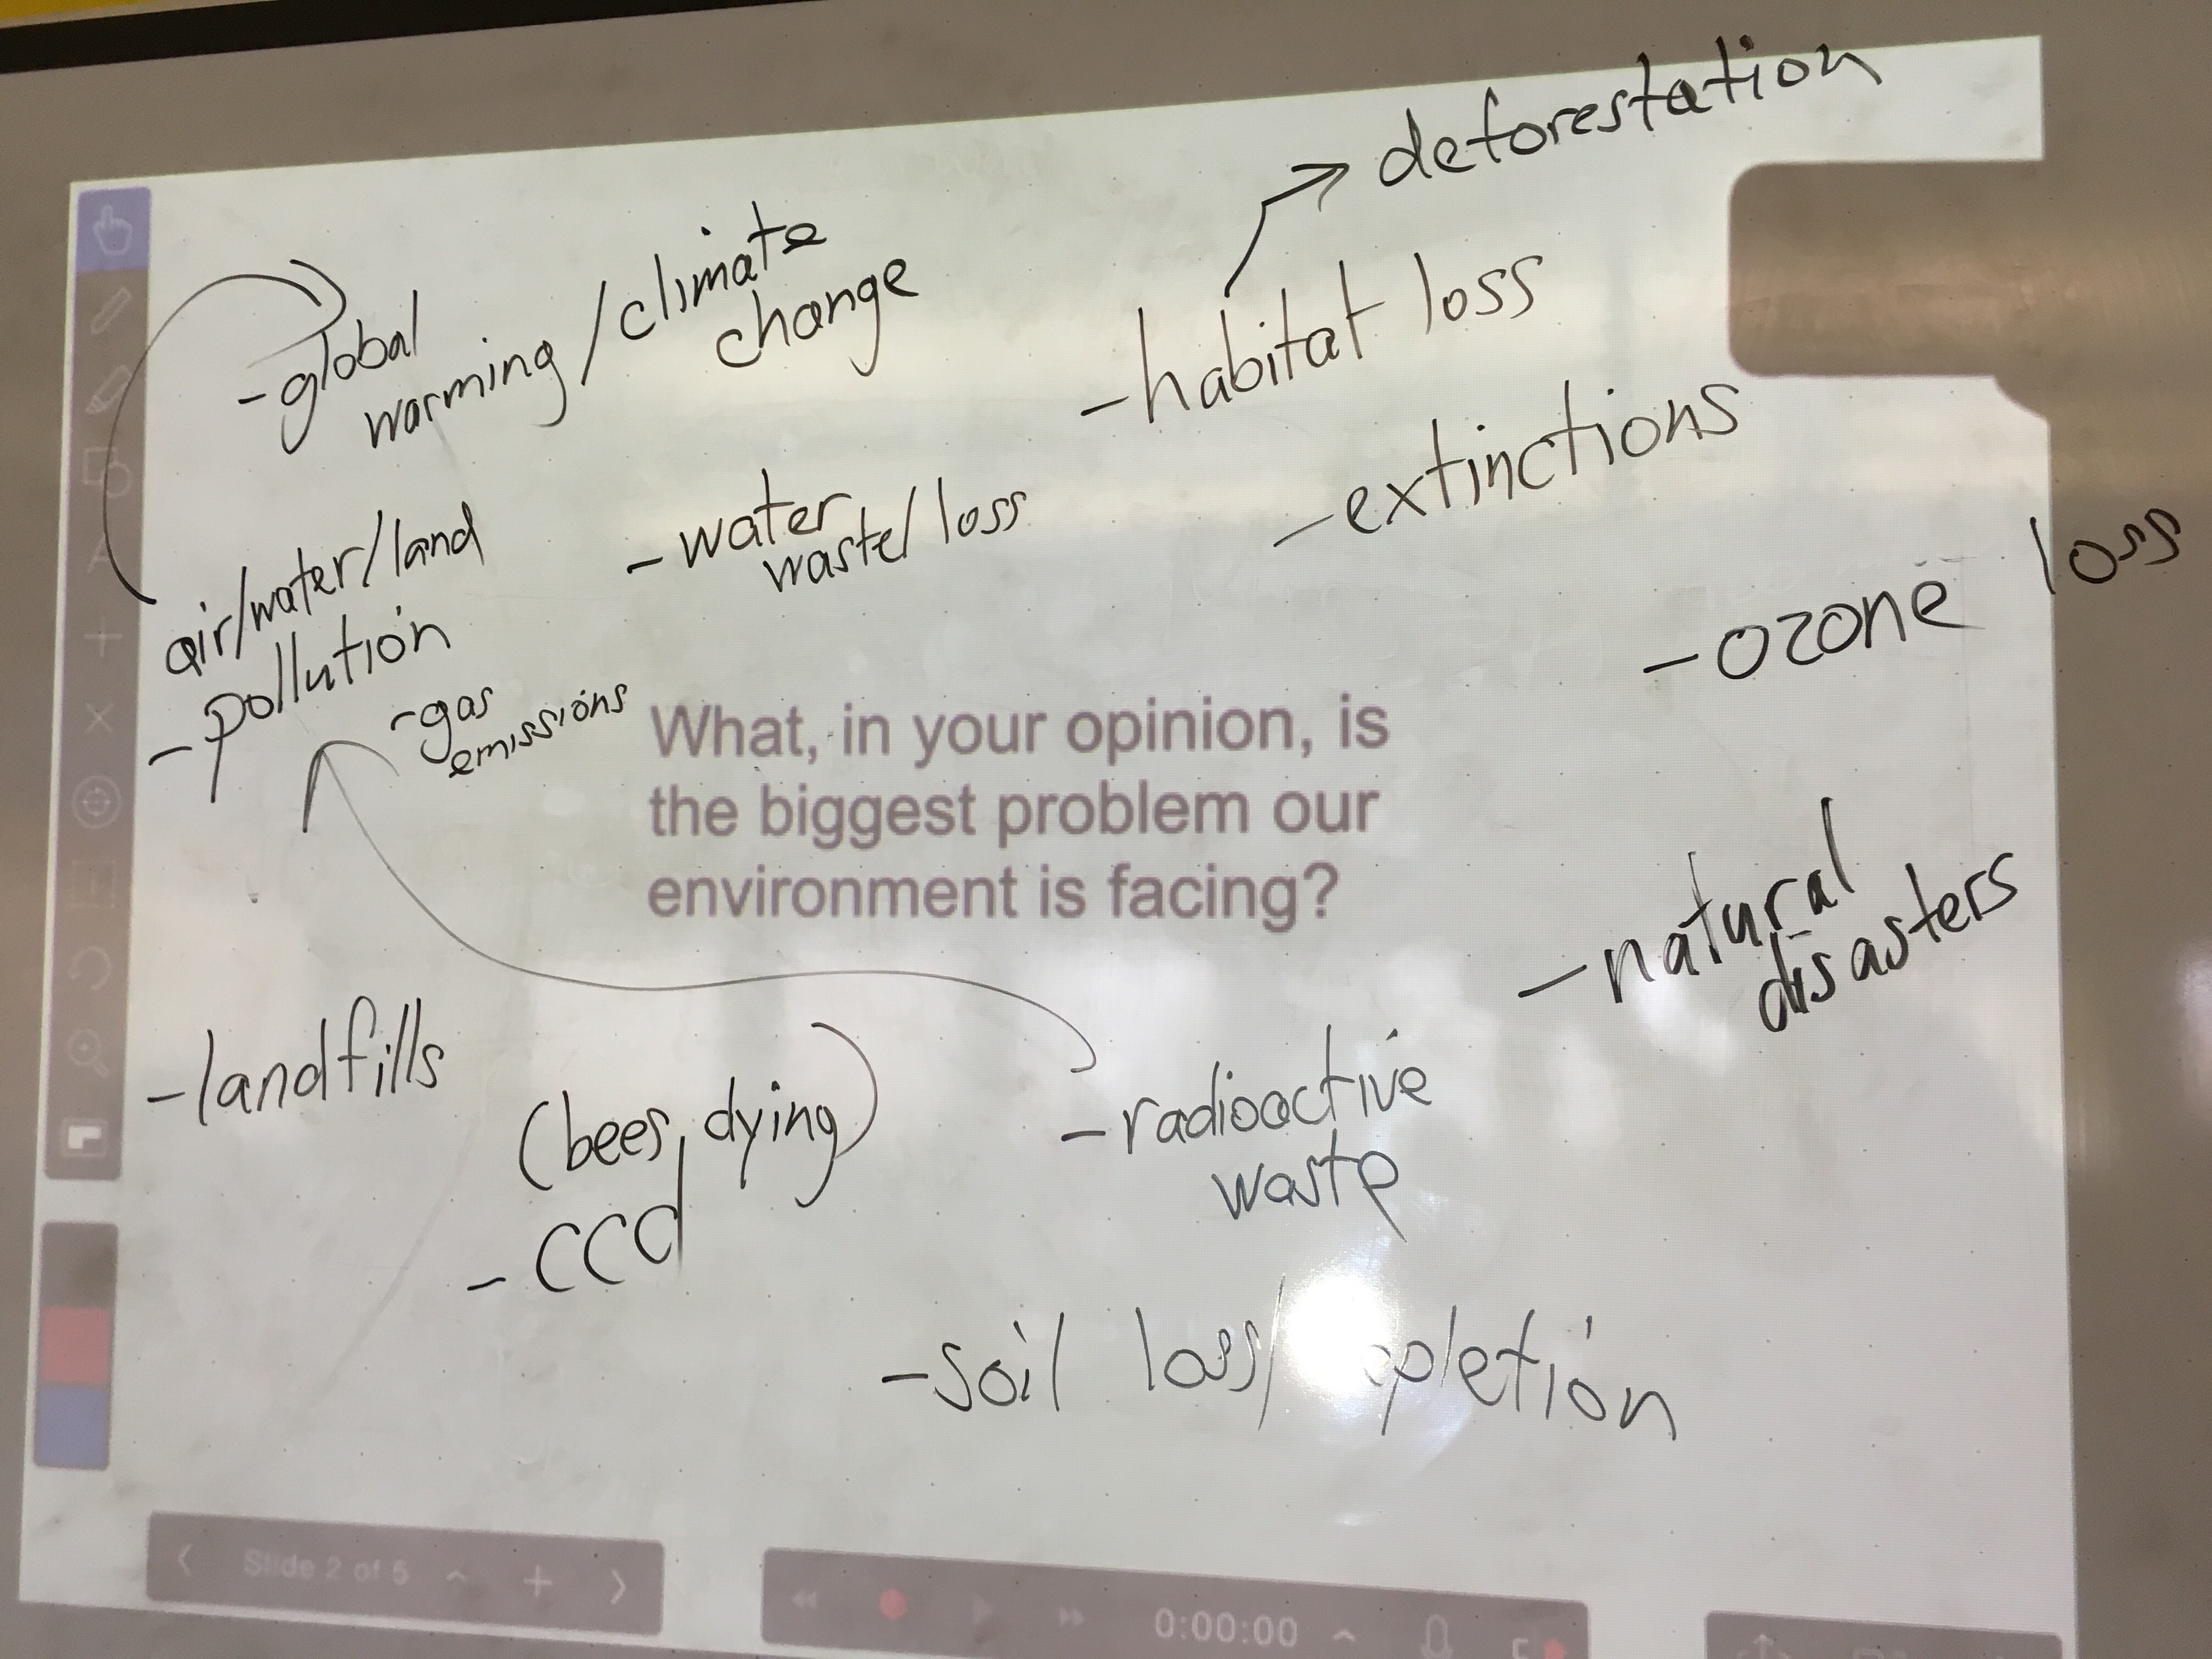 deforestation
-global
warming/climate
change
-habitat loss
-extinctions
air/water/land
-pollution
-water
waste/loss
-ozone loss
-gas
emissions
What, in your opinion, is
the biggest problem our
environment is facing?
-natural
disasters
-landfills
(bees dying)
-ccd
-radioactive
waste
-soil loss/
Slide 2 of 5
0:00:00